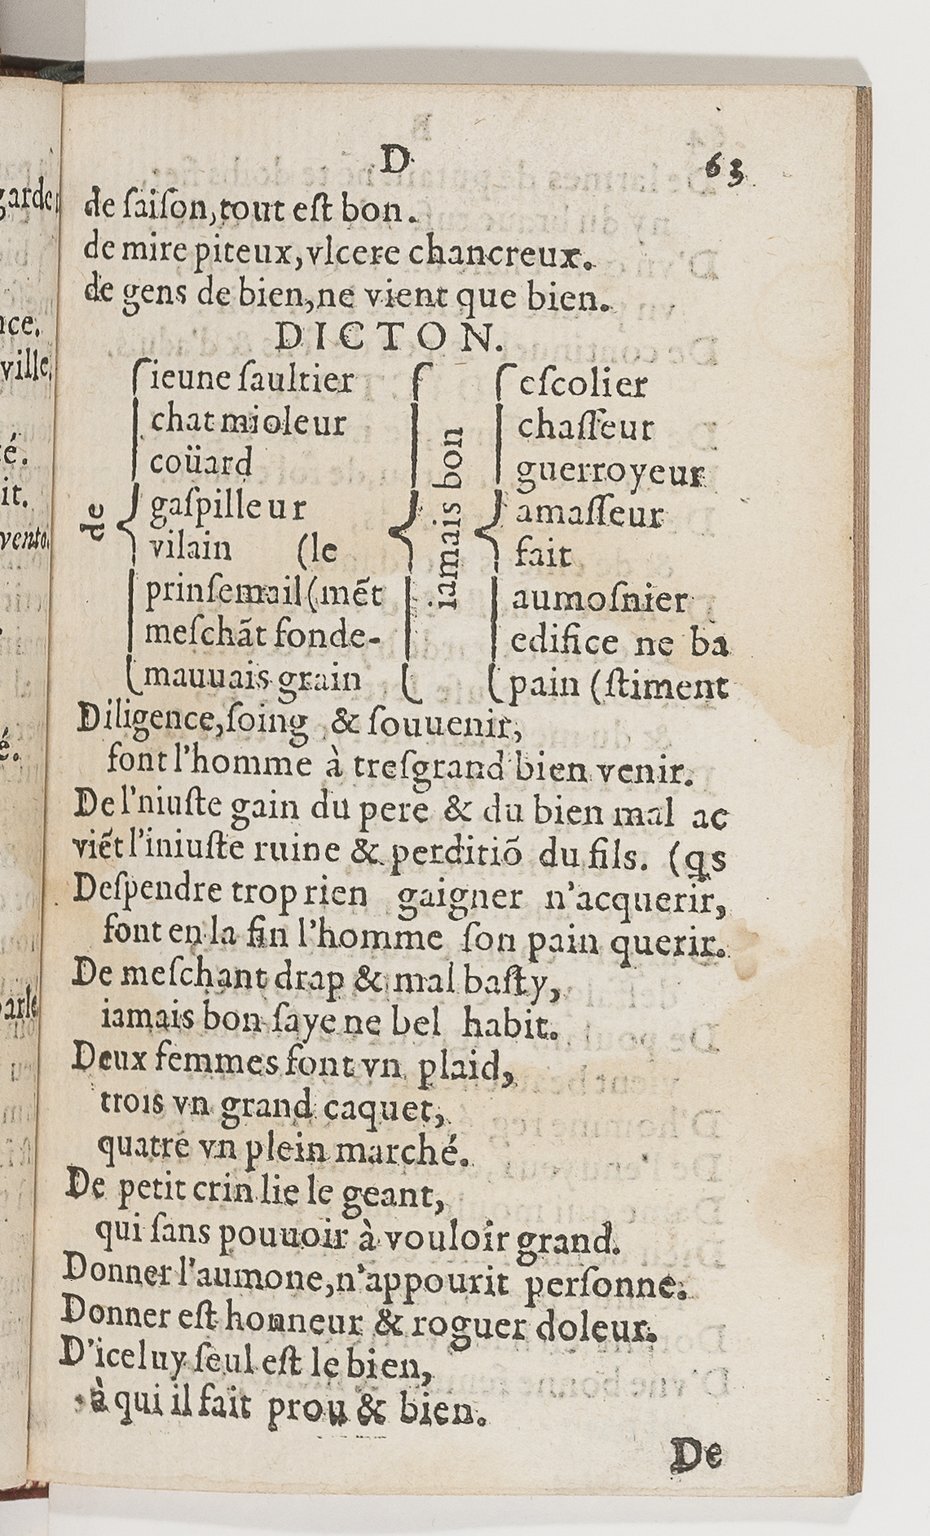 D
63
de ſaiſon, tout eſt bon.
de mire piteux, vlcere chancreux.
de gens de bien, ne vient que bien.
DICTON.
de
ieune ſaultier
chat mioleur
coüard
gaſpilleur
vilain (le
prinſemail (mẽt
meſchãt fonde-
mauuais grain
iamais bon
eſcolier
chaſſeur
guerroyeur
amaſſeur
fait
aumoſnier
edifice ne ba
pain (ſtiment
Diligence, ſoing & ſouuenir,
font l'homme à treſgrand bien venir.
De l'niuſte gain du pere & du bien mal ac
viẽt l'iniuſte ruine & perditiõ du fils. (qs
Deſpendre trop rien gaigner n'acquerir,
font en la fin l'homme ſon pain querir.
De meſchant drap & mal baſty,
iamais bon ſaye ne bel habit.
Deux femmes font vn plaid,
trois vn grand caquet,
quatre vn plein marché.
De petit crin lie le geant,
qui ſans pouuoir à vouloir grand.
Donner l'aumone, n'appourit perſonne.
Donner eſt honneur & roguer doleur.
D'iceluy ſeul eſt le bien,
à qui il fait prou & bien.
De
garde
nce.
ville.
é.
it.
vento.
é.
parle